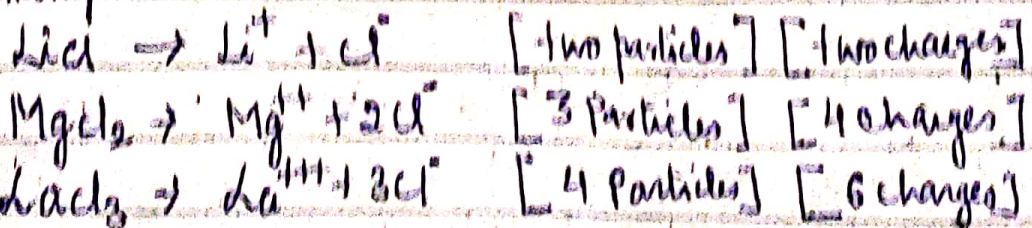 LiCl → Li⁺ + Cl⁻ [two particles] [two charges]
MgCl₂ → Mg⁺⁺ + 2Cl⁻ [3 Particles] [4 charges]
LaCl₃ → La⁺⁺⁺ + 3Cl⁻ [4 Particles] [6 charges]